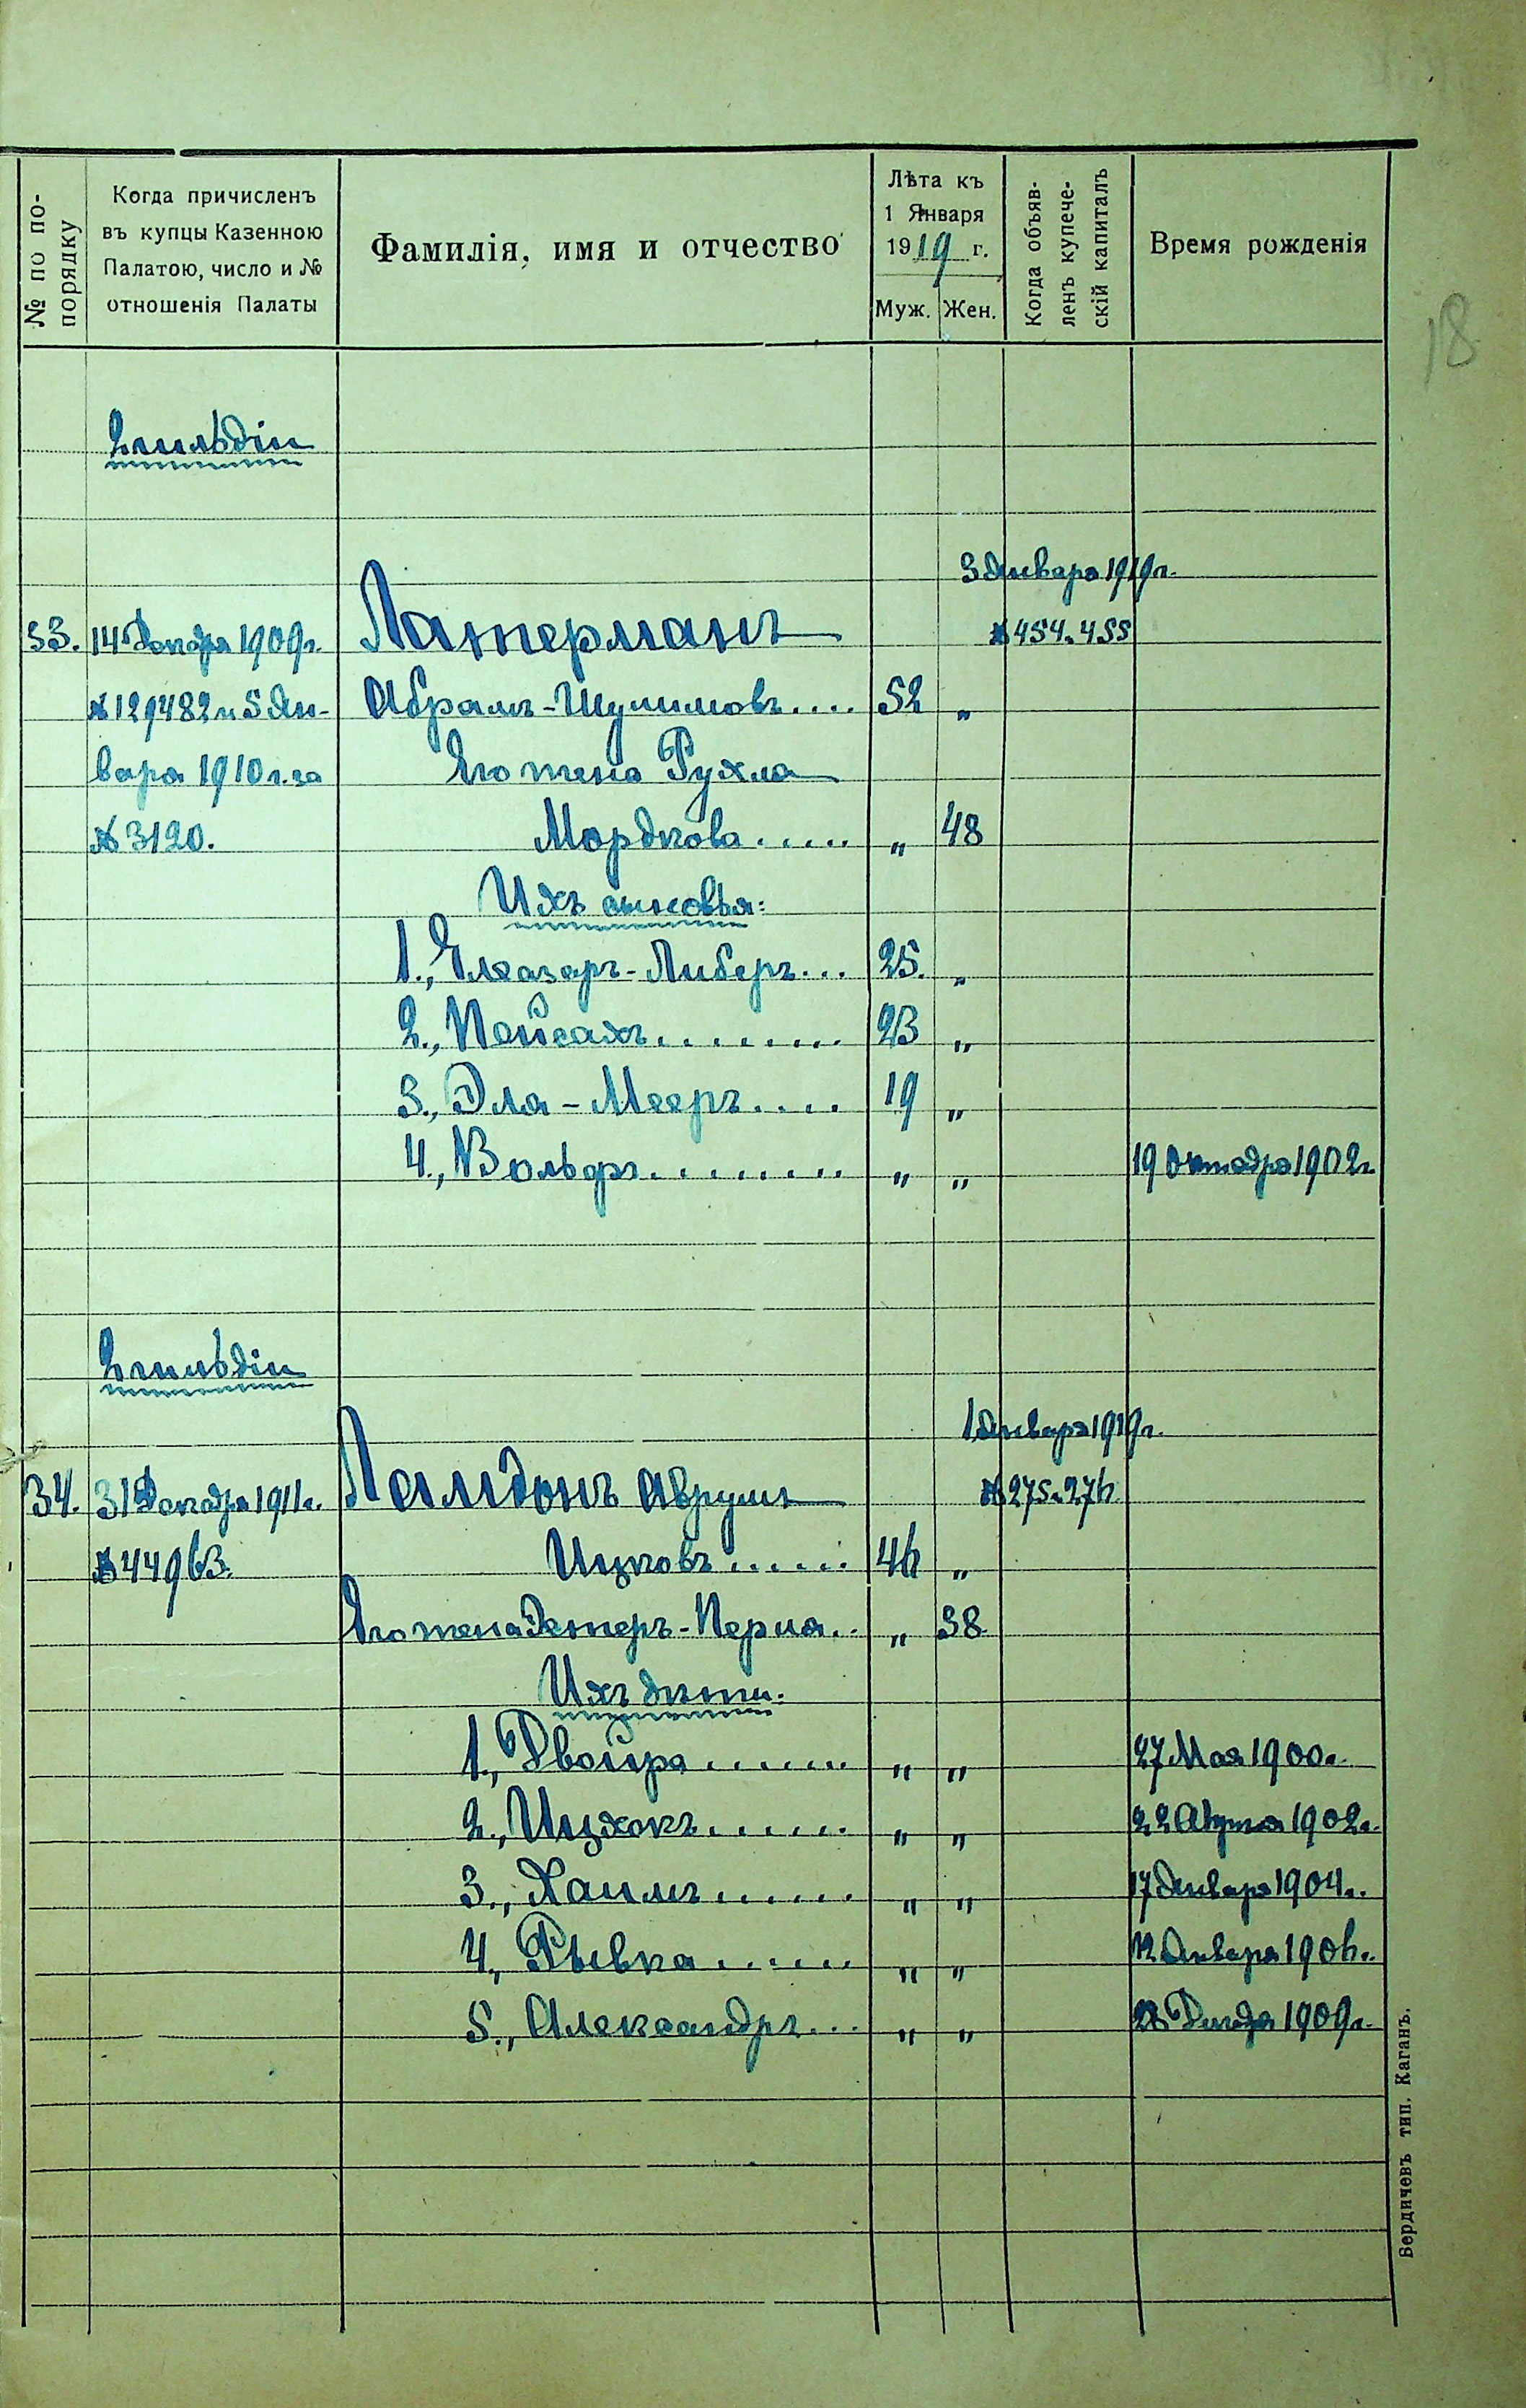 № по по-
порядку
Когда причисленъ
въ купцы Казенною
Палатою, число и №
отношенія Палаты
Фамилія, имя и отчество
Лѣта къ
1 Января
1919 г.
Муж. Жен.
Когда объяв-
ленъ купече-
скій капиталъ
Время рожденія
18
2 гильдіи
3 Января 1919 г.
33. 14 Декабря 1909 г. Латерманъ № 454 и 455
№ 129482 и 5 Ян- Абрамъ-Шулимовъ.... 52 „
варя 1910 г. за Его жена Рухля
№ 3120. Мордкова..... „ 48
Ихъ сыновья:
1., Елеазаръ-Либеръ... 25. „
2., Пейсахъ......... 23 „
3., Эля-Мееръ.... 19 „
4., Вольфъ......... „ „ 19 Октября 1902 г.
2 гильдіи
1 Января 1919 г.
34. 31 Декабря 1911 г. Лемдонъ Аврумъ № 275 и 276
№ 44963. Ицковъ...... 46 „
Его жена Эстеръ-Перля.. „ 38
Ихъ дѣти:
1., Двойра....... „ „ 27 Мая 1900 г.
2., Ицхокъ...... „ „ 22 Августа 1902 г.
3., Хаимъ...... „ „ 17 Января 1904 г.
4., Рывка...... „ „ 12 Января 1906 г.
5., Александръ... „ „ 28 Декабря 1909 г.
Бердичевъ тип. Каганъ.